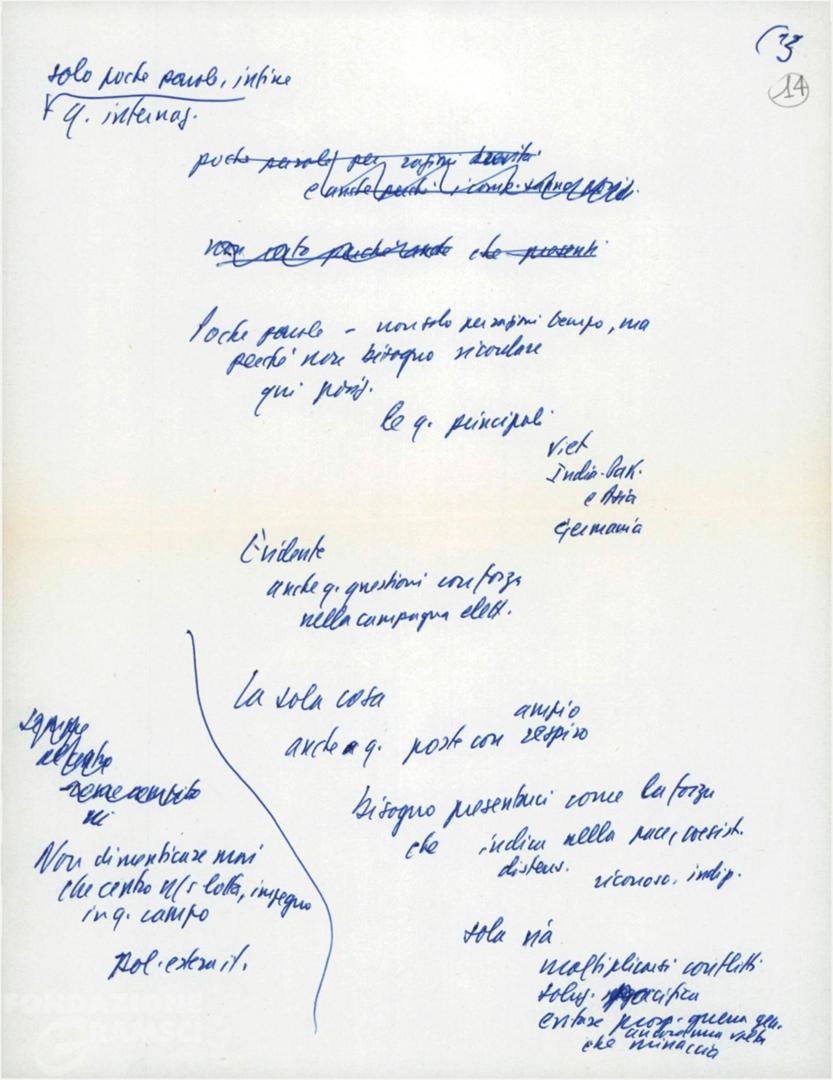 (3
14
solo poche parole, infine
q. internaz.
poche parole per ragioni brevità
e anche
non certo perché che presenti
Poche parole - non solo per ragioni tempo, ma
perché non bisogno ricordare
qui posiz.
le q. principali
Viet
India-Pak.
e Asia
Germania
Evidente
anche q. questioni con forza
nella campagna elett.
La sola cosa
anche q. poste con ampio respiro
bisogno presentarci come la forza
che indica nella pace, coesist.
distens. riconosc. indip.
sola via
moltiplicarsi conflitti
soluz. pacifica
evitare prosp. guerra gen.
ancora una volta
che minaccia
sempre
al centro
Non dimenticare mai
che centro n/s lotta, impegno
in q. campo
pol. estera it.
FONDAZIONE
GRAMSCI